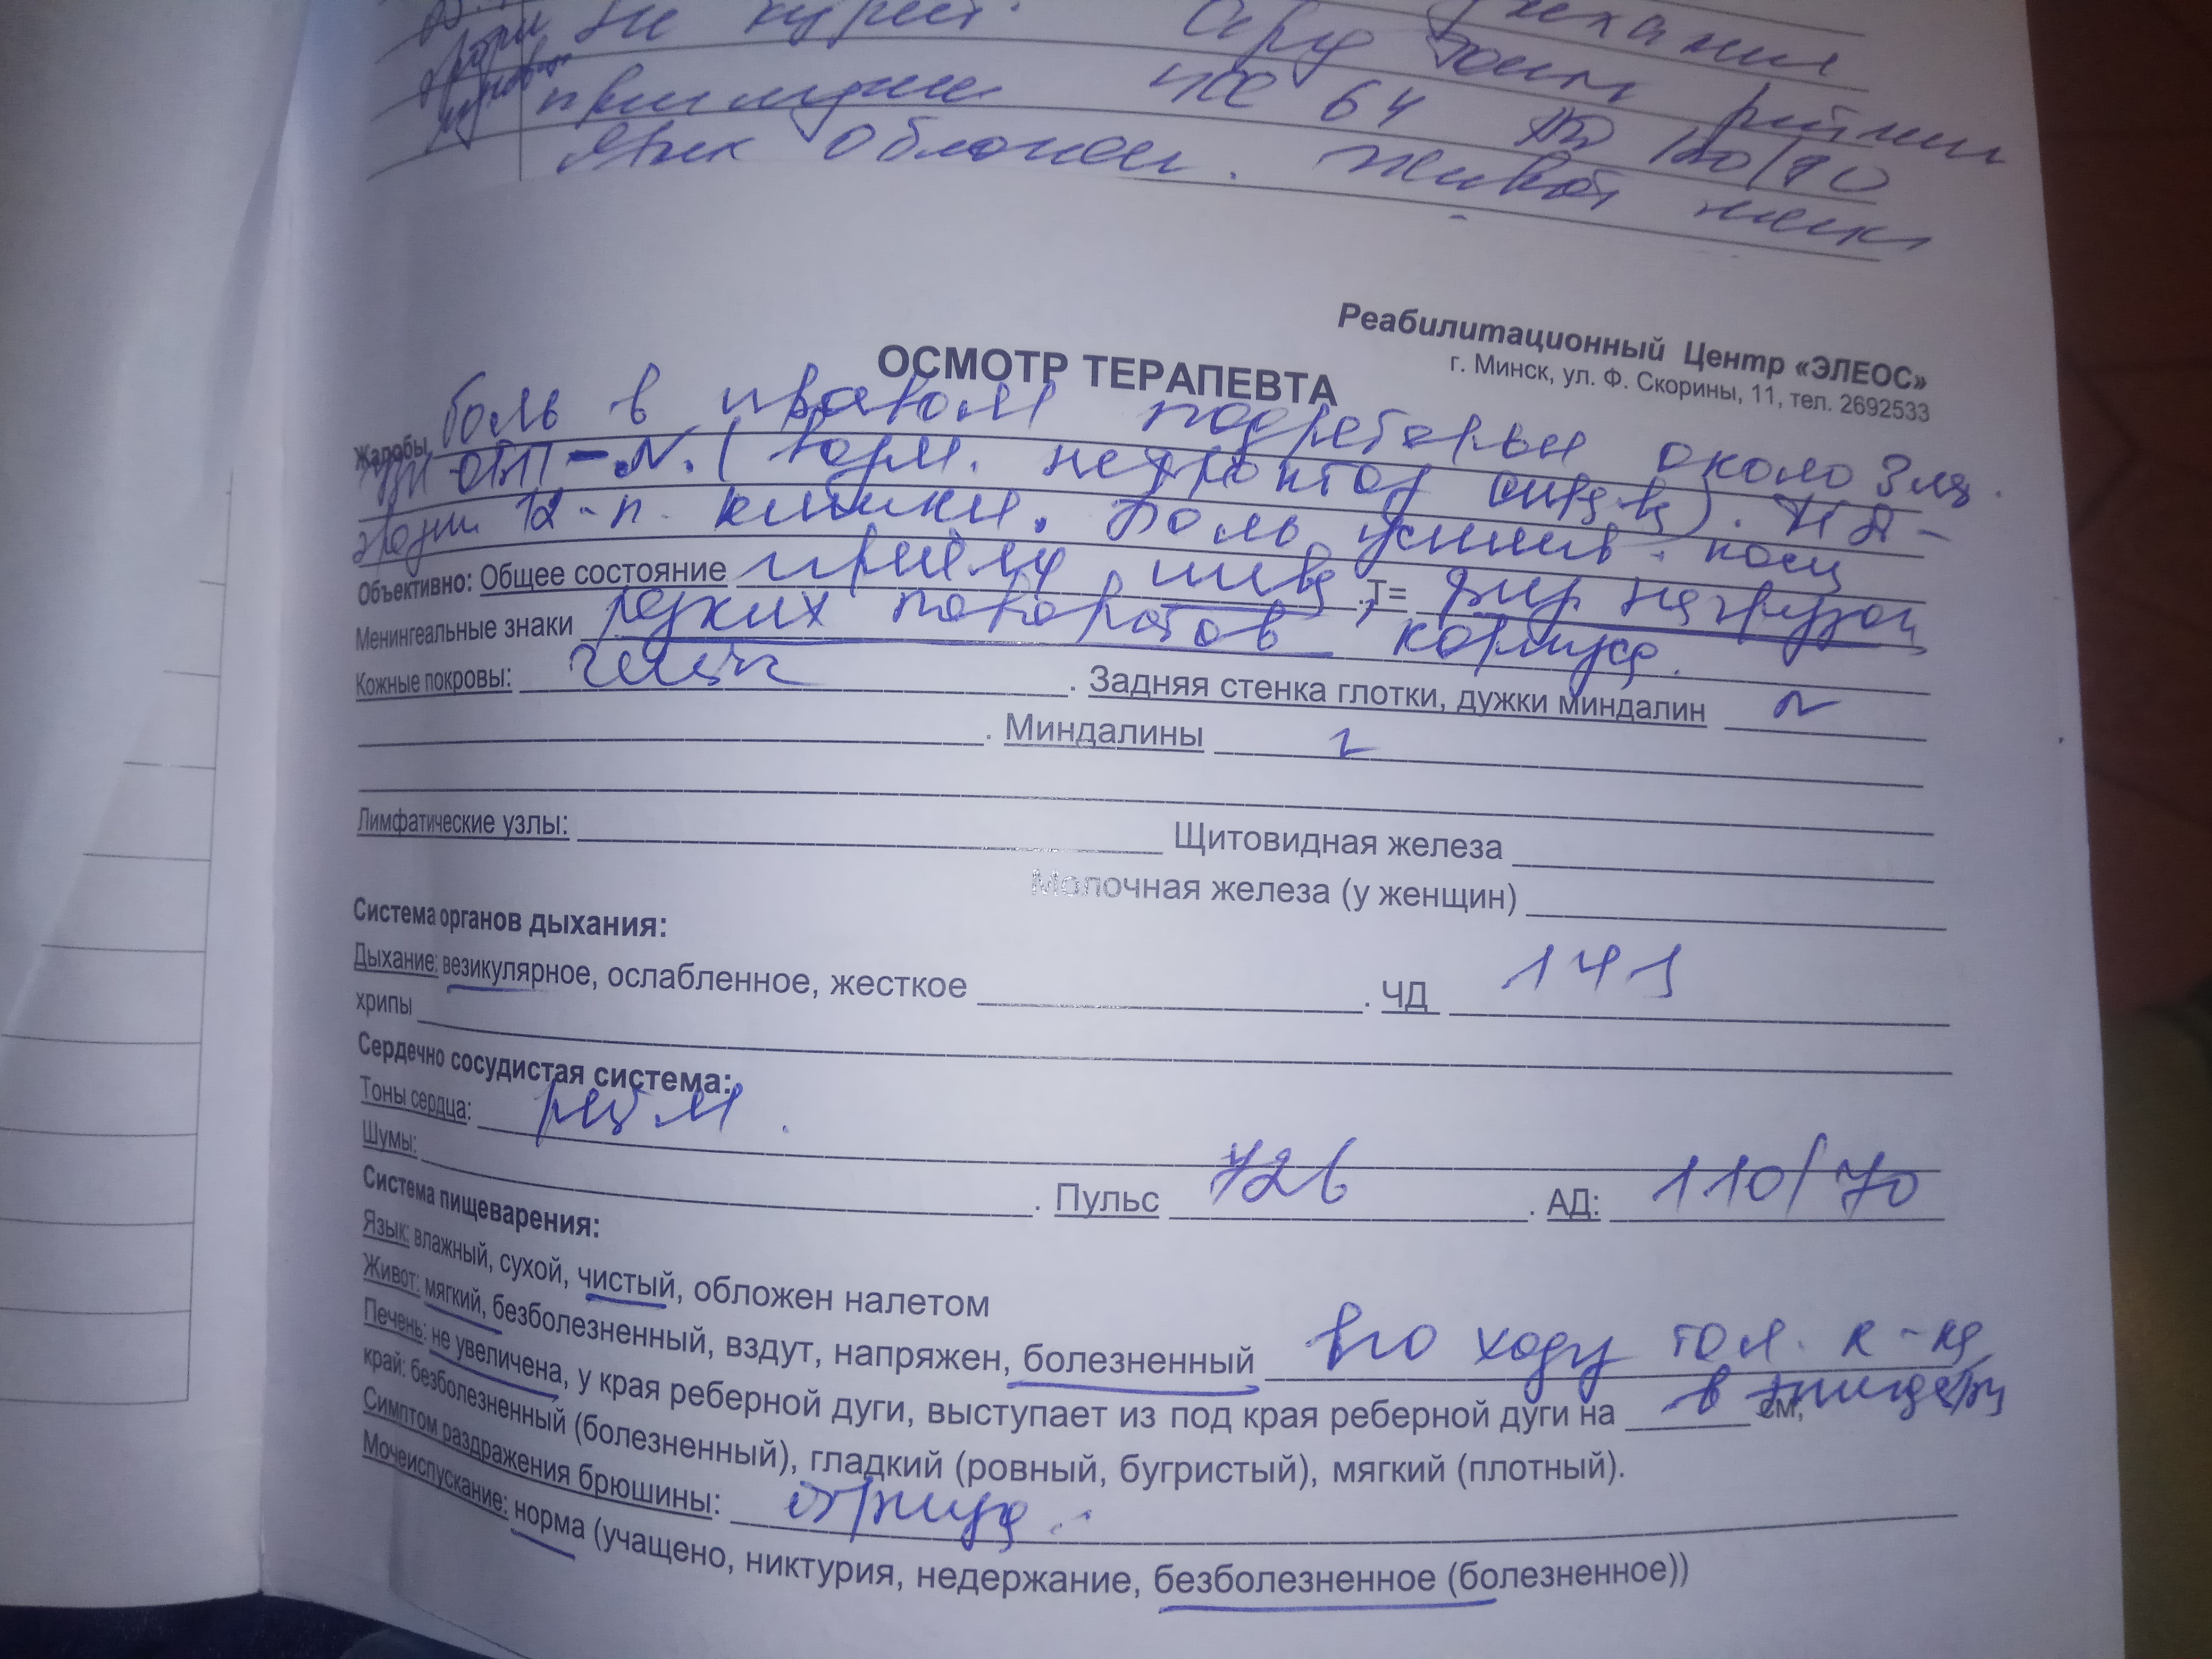 не курит. дыхания
Серд тоны ритмич
приглушен ЧСС 64 АД 120/90
Язык обложен. Живот мягк
Реабилитационный Центр «ЭЛЕОС»
г. Минск, ул. Ф. Скорины, 11, тел. 2692533
ОСМОТР ТЕРАПЕВТА
Жалобы боль в правом подреберье около 3
УЗИ ОБП - N. (
12-п. кишки. Боль усилив. после
Объективно: Общее состояние приёму пищи, T= физ нагрузок
Менингеальные знаки резких поворотов корпуса.
Кожные покровы: чист . Задняя стенка глотки, дужки миндалин N
. Миндалины
Лимфатические узлы: Щитовидная железа
Молочная железа (у женщин)
Система органов дыхания:
Дыхание: везикулярное, ослабленное, жесткое . ЧД 14
хрипы
Сердечно сосудистая система:
Тоны сердца: ритм.
Шумы: . Пульс 72 . АД: 110/70
Система пищеварения:
Язык: влажный, сухой, чистый, обложен налетом
Живот: мягкий, безболезненный, вздут, напряжен, болезненный по ходу тол. к-ка
Печень: не увеличена, у края реберной дуги, выступает из под края реберной дуги на в см,
край: безболезненный (болезненный), гладкий (ровный, бугристый), мягкий (плотный).
Симптом раздражения брюшины: отриц.
Мочеиспускание: норма (учащено, никтурия, недержание, безболезненное (болезненное))